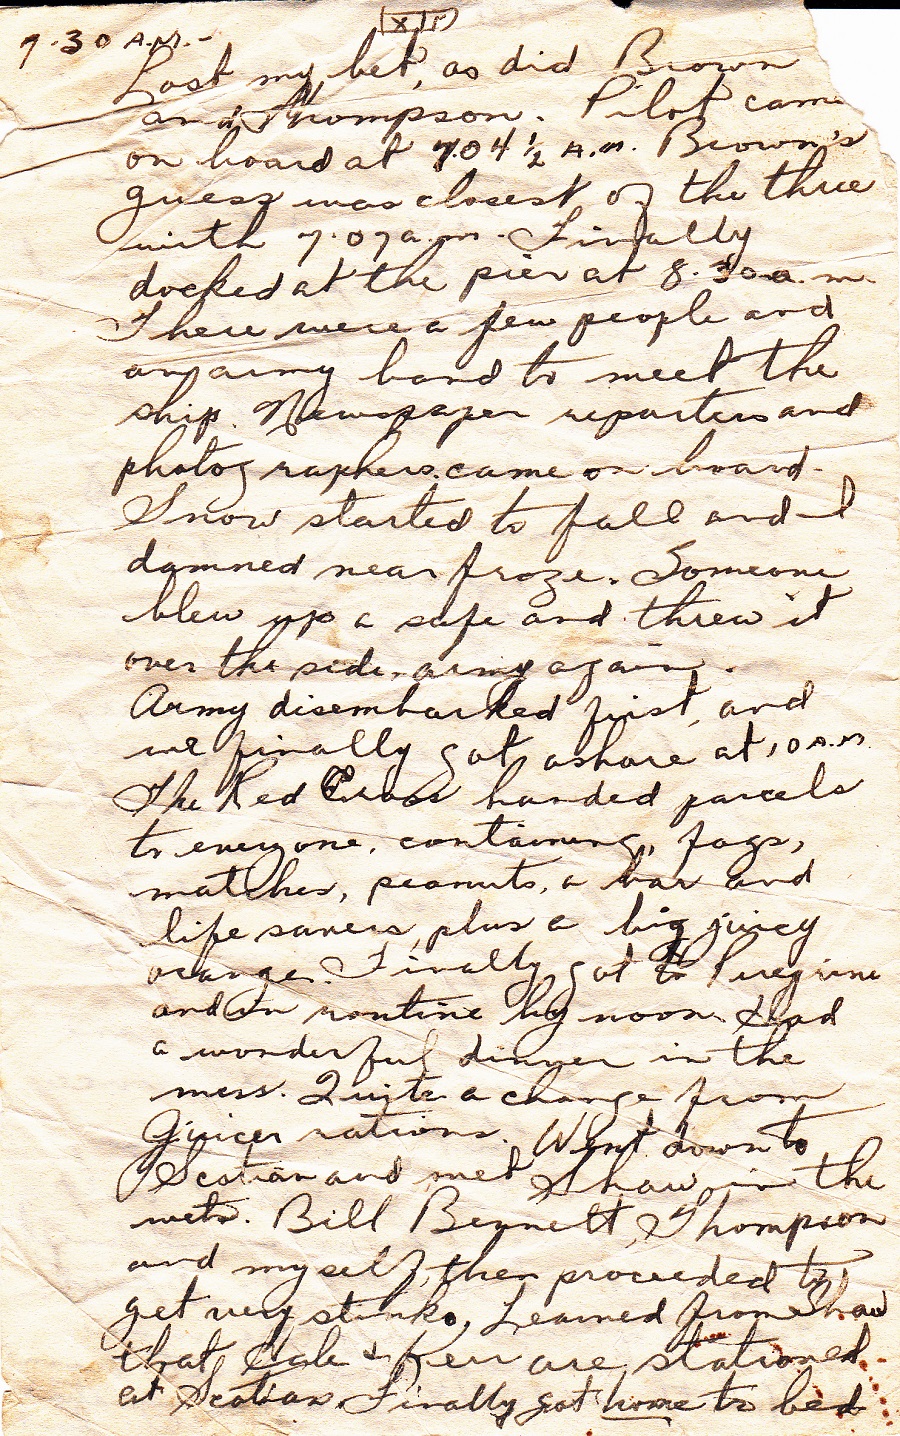 XII
7.30 A.M.-
Lost my bet, as did Brown
and Thompson. Pilot came
on board at 7.04 1/2 A.m. Brown's
guess was closest of the three
with 7.07 a.m. Finally
docked at the pier at 8.30 a.m.
There were a few people and
an army band to meet the
ship. Newspaper reporters and
photographers came on board.
Snow started to fall and I
damned near froze. Someone
blew up a safe and threw it
over the side, army again.
Army disembarked first, and
we finally got ashore at 10 A.M.
The Red Cross handed parcels
to everyone, containing, fags,
matches, peanuts, a bar and
life savers, plus a big juicy
orange. Finally got to Peregrine
and in routine by noon. Had
a wonderful dinner in the
mess. Quite a change from
Gjuicer rations. Went down to
Scotian and met Shaw in the
wets. Bill Bennett, Thompson
and myself, then proceeded to
get very stinko. Learned from Shaw
that & Kerr are stationed
at Scotian. Finally got home to bed